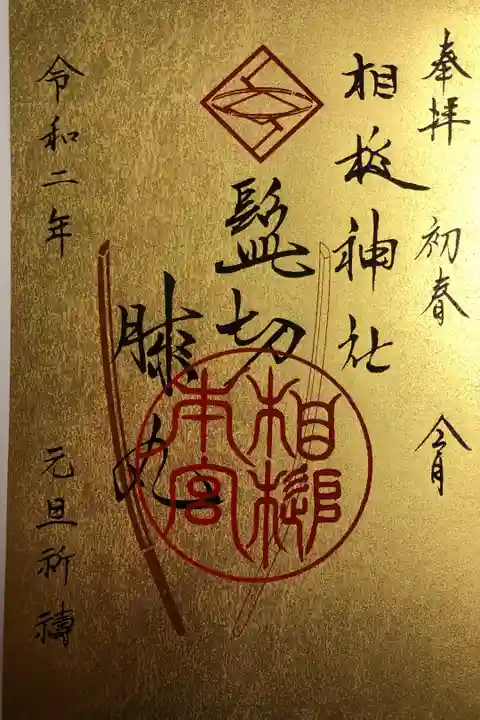 奉拝 初春 令月
相槌神社
髭切
膝丸
相槌本宮
令和二年 元旦祈祷